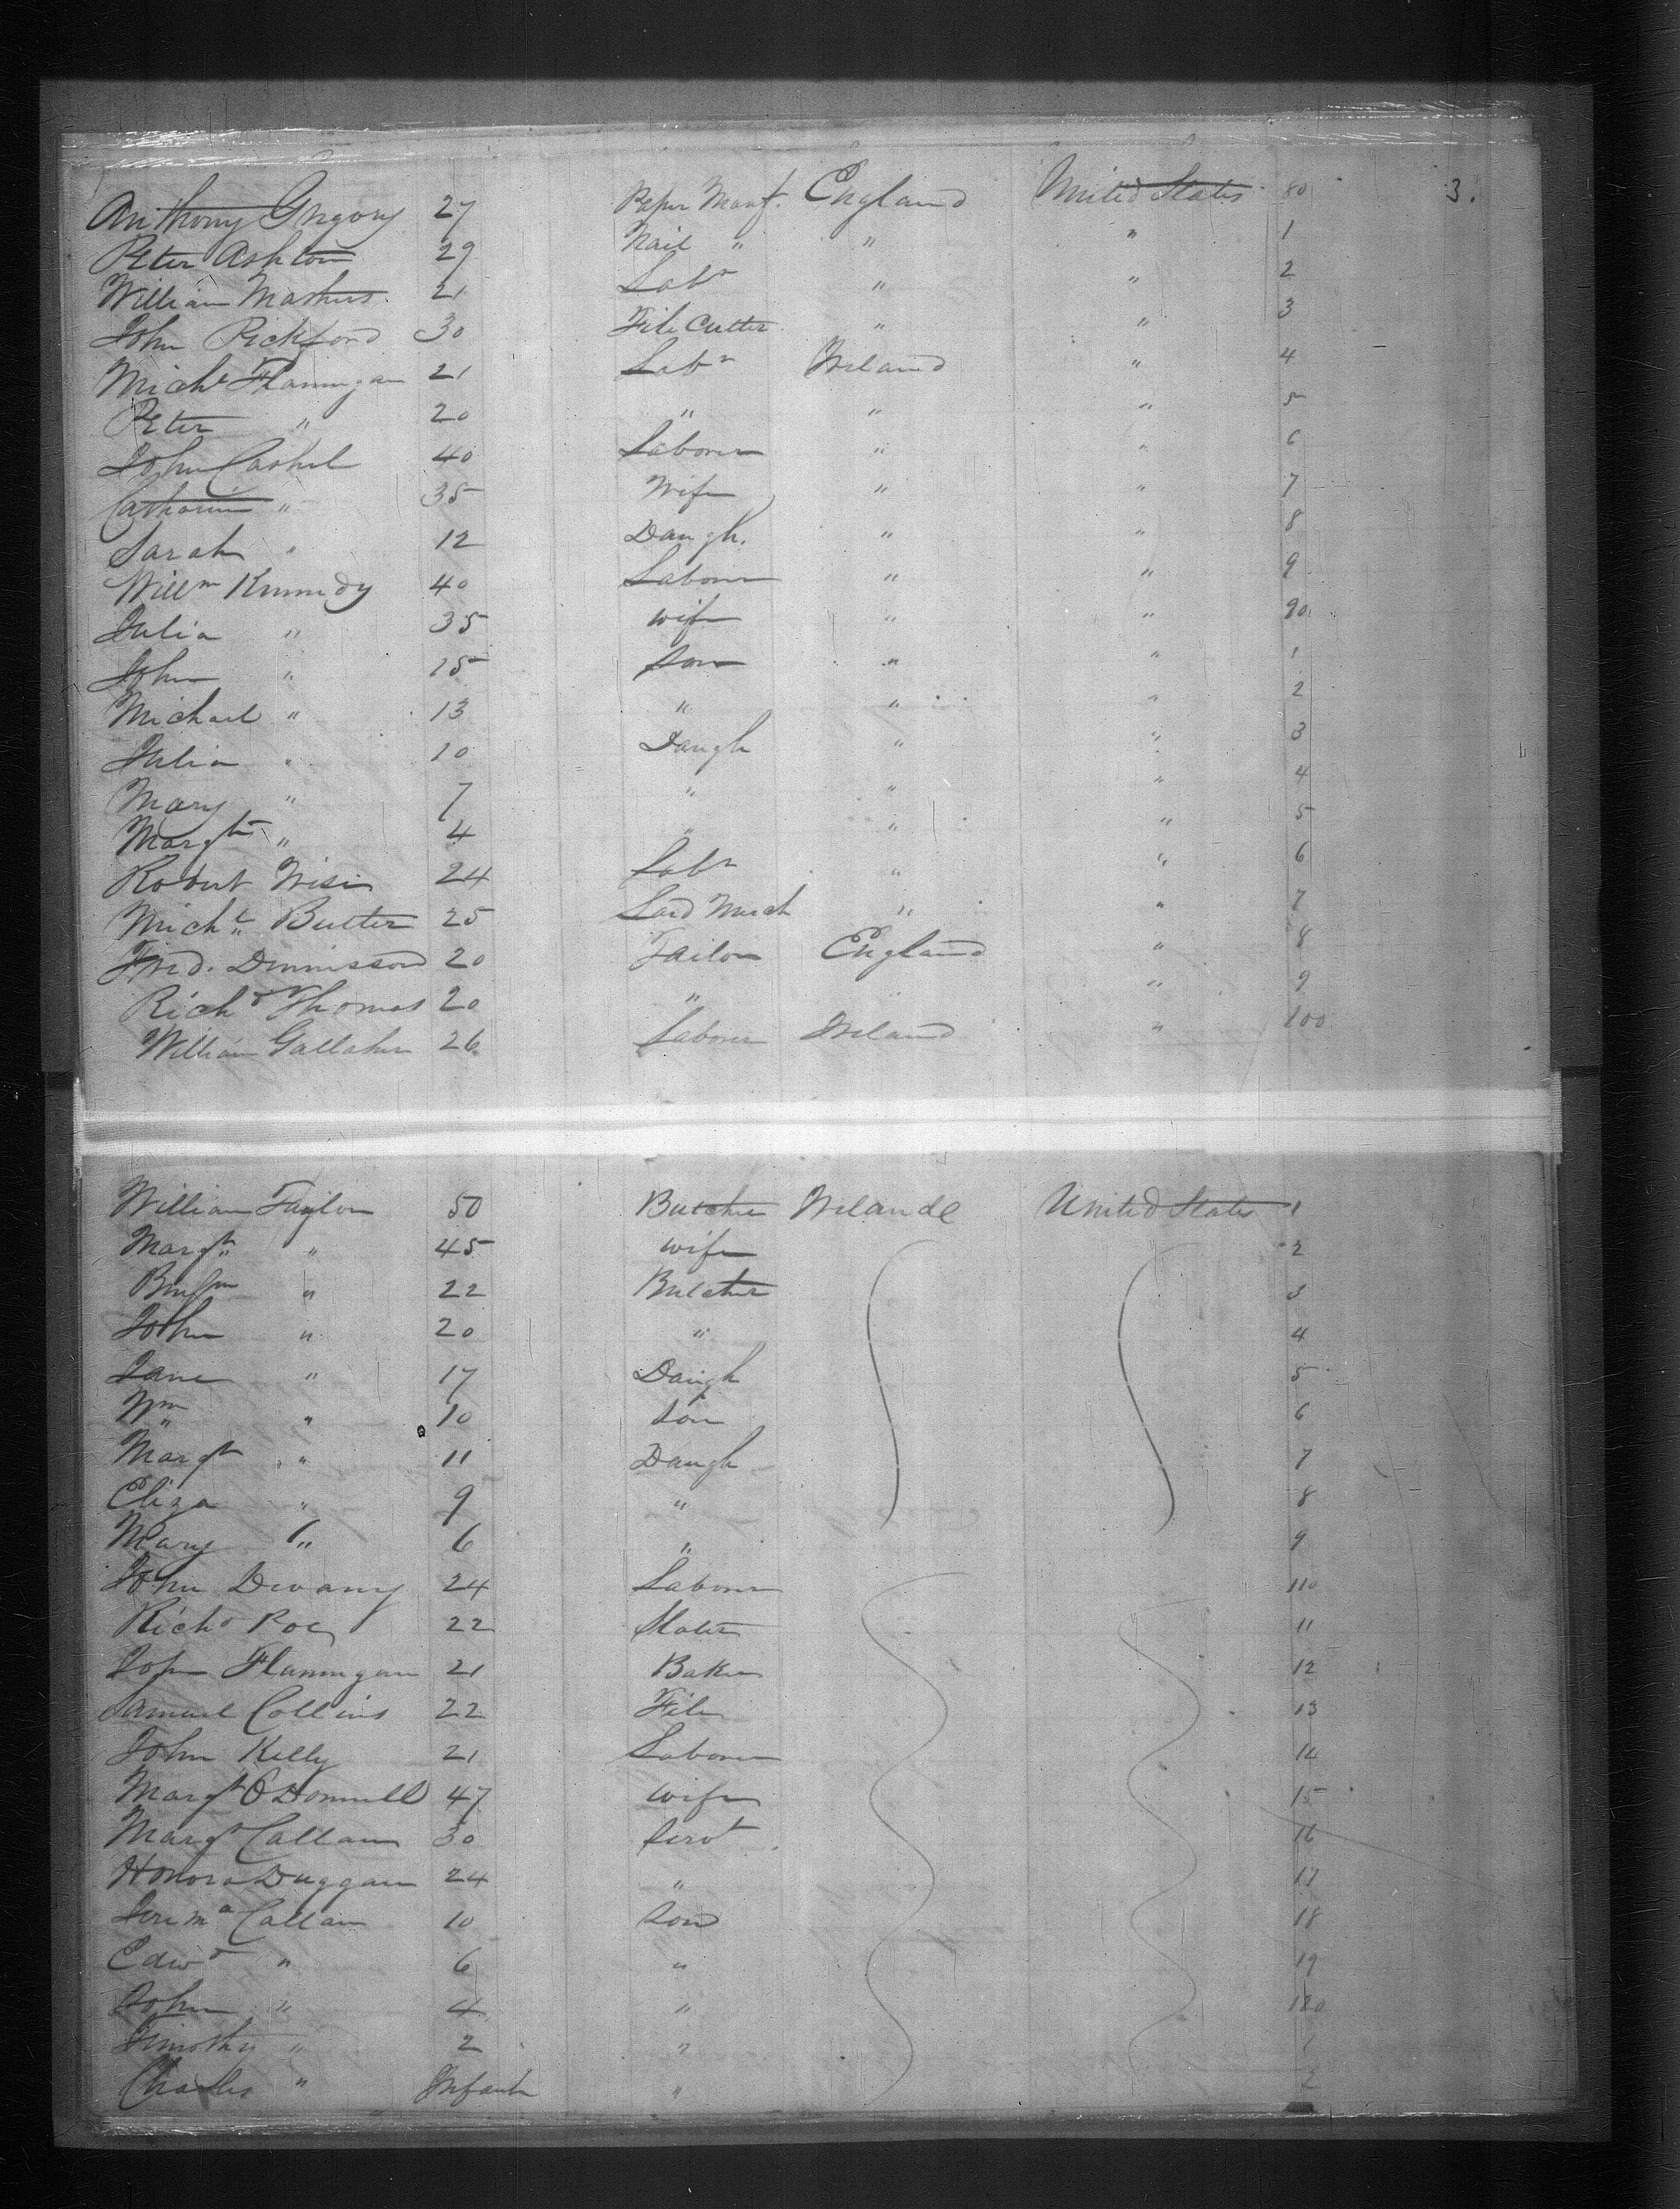 3.
Anthony Gregory 27 Paper Manf. England United States 80
Peter Ashton 29 Nail " " " 1
William Mathers 21 Labr " " 2
John Pickford 30 File Cutter " " 3
Michl Flannigan 21 Labr Ireland " 4
Peter " 20 " " " 5
John Cashel 40 Laborer " " 6
Catharine " 35 Wife " " 7
Sarah " 12 Daugh. " " 8
Willm Kennedy 40 Laborer " " 9
Julia " 35 wife " " 90
John " 15 son " " 1
Michael " 13 " " " 2
Julia " 10 Daugh " " 3
Mary " 7 " " " 4
Margt " 4 " " " 5
Robert Wise 24 Labr " " 6
Michl Butler 25 " " 7
Fred. Dennisson 20 Tailor England " 8
Richd Thomas 20 " " " 9
William Gallaher 26 Laborer Ireland " 100
William Taylor 50 Butcher Ireland United States 1
Margt " 45 wife 2
Benjmn " 22 Butcher 3
John " 20 " 4
Jane " 17 Daugh 5
Wm " 10 son 6
Margt " 11 Daugh 7
Eliza " 9 " 8
Mary " 6 " 9
John Devany 24 Laborer 110
Richd Roe 22 Slater 11
John Flannigan 21 Baker 12
Samuel Collins 22 File 13
John Kelly 21 Laborer 14
Margt O'Donnell 47 wife 15
Margt Callan 30 Servt 16
Honora Duggan 24 " 17
Jerema Callan 10 Son 18
Edwd " 6 " 19
John " 4 " 120
Timothy " 2 " 1
Charles " Infant " 2